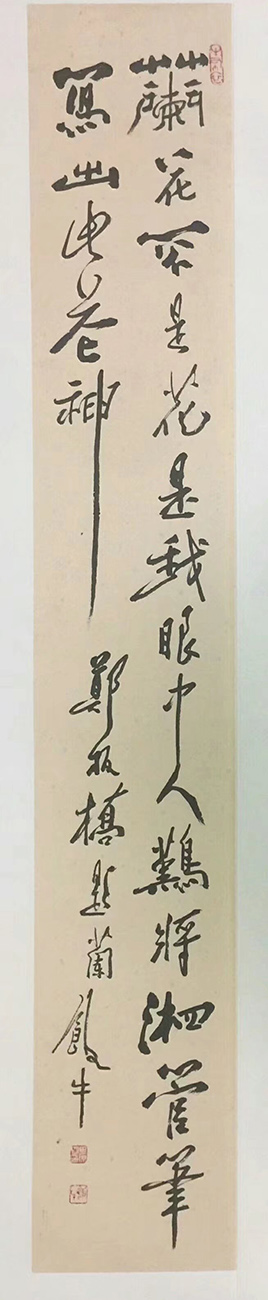 蘭花不是花是我眼中人難將湘管筆
寫出此花神 鄭板橋題蘭 飲牛